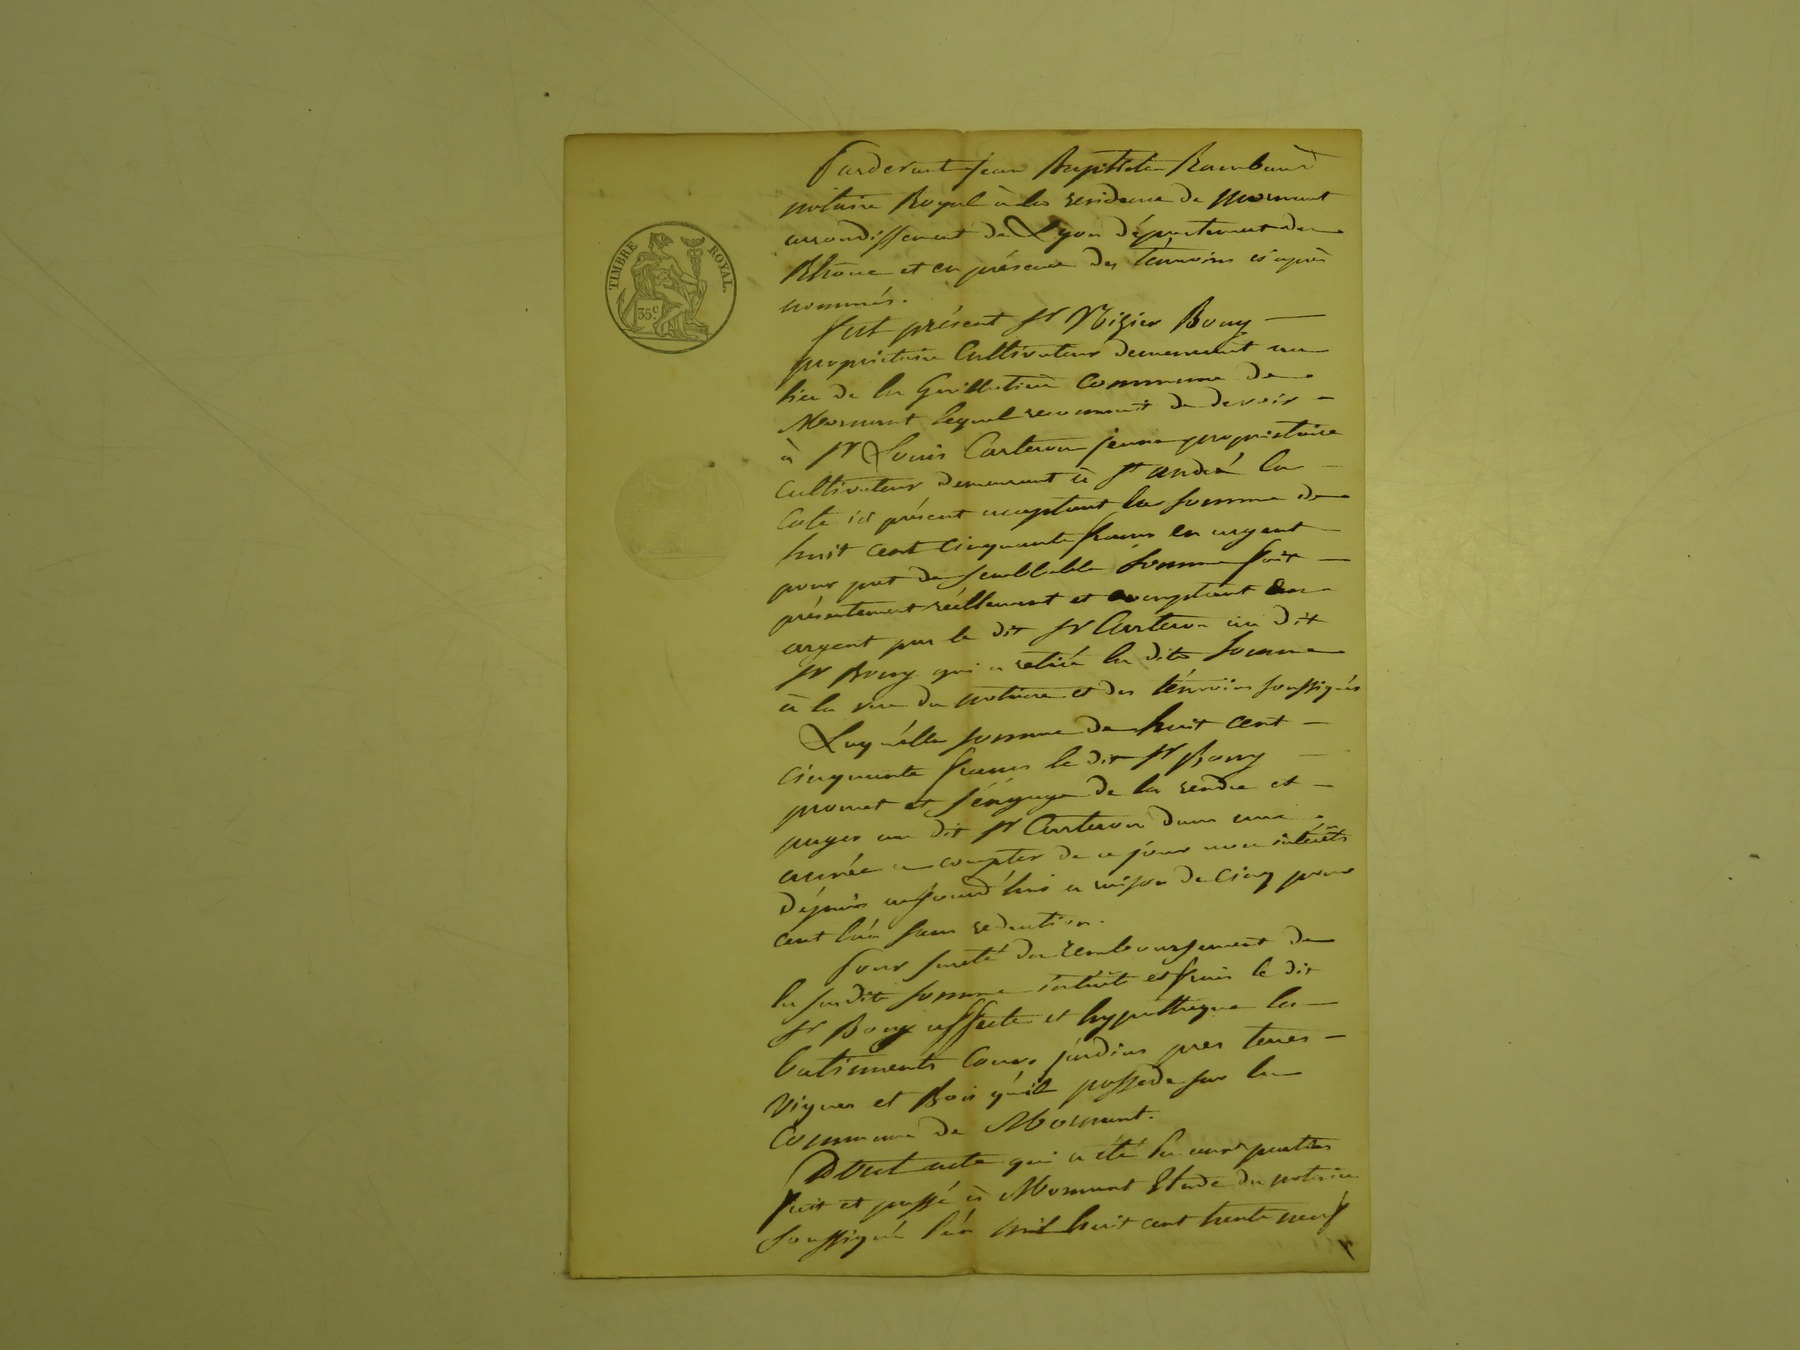 TIMBRE ROYAL.
35 c
Pardevant Jean Baptiste Raimbaud
notaire Royal à la residence de Mornant
arrondissement de Lyon département du
Rhône et en présence des témoins ci après
nommés.
Fut présent Sr Nizier Bony
propriétaire Cultivateur demeurant au
lieu de la Guillotière commune de
Mornant lequel reconnait de devoir
à Sr Louis Carteron jeune propriétaire
Cultivateur demeurant à St andré la
Cote ici présent acceptant la somme de
huit cent cinquante francs en argent
pour pret de semblable somme fait
présentement réellement et comptant en
argent par le dit Sr Carteron au dit
Sr Bony qui a retiré la dite somme
à la vue du notaire et des témoins soussignés
Laquélle somme de huit cent
cinquante francs le dit Sr Bony
promet et s'éngage de la rendre et
payer au dit Sr Carteron dans une
année a compter de ce jour avec intérêts
dépuis aujourd'hui a raison de cinq pour
cent l'an sans reduction.
Pour sureté du remboursement de
la susdite somme intérêts et frais le dit
Sr Bony affecte et hypotheque les
batiments Cours jardins pres terres
vignes et Bois qu'il possede sur la
Commune de Mornant.
Dont acte qui a été lu aux parties
fait et passé à Mornant Etude du notaire
soussigné l'an mil huit cent trente neuf